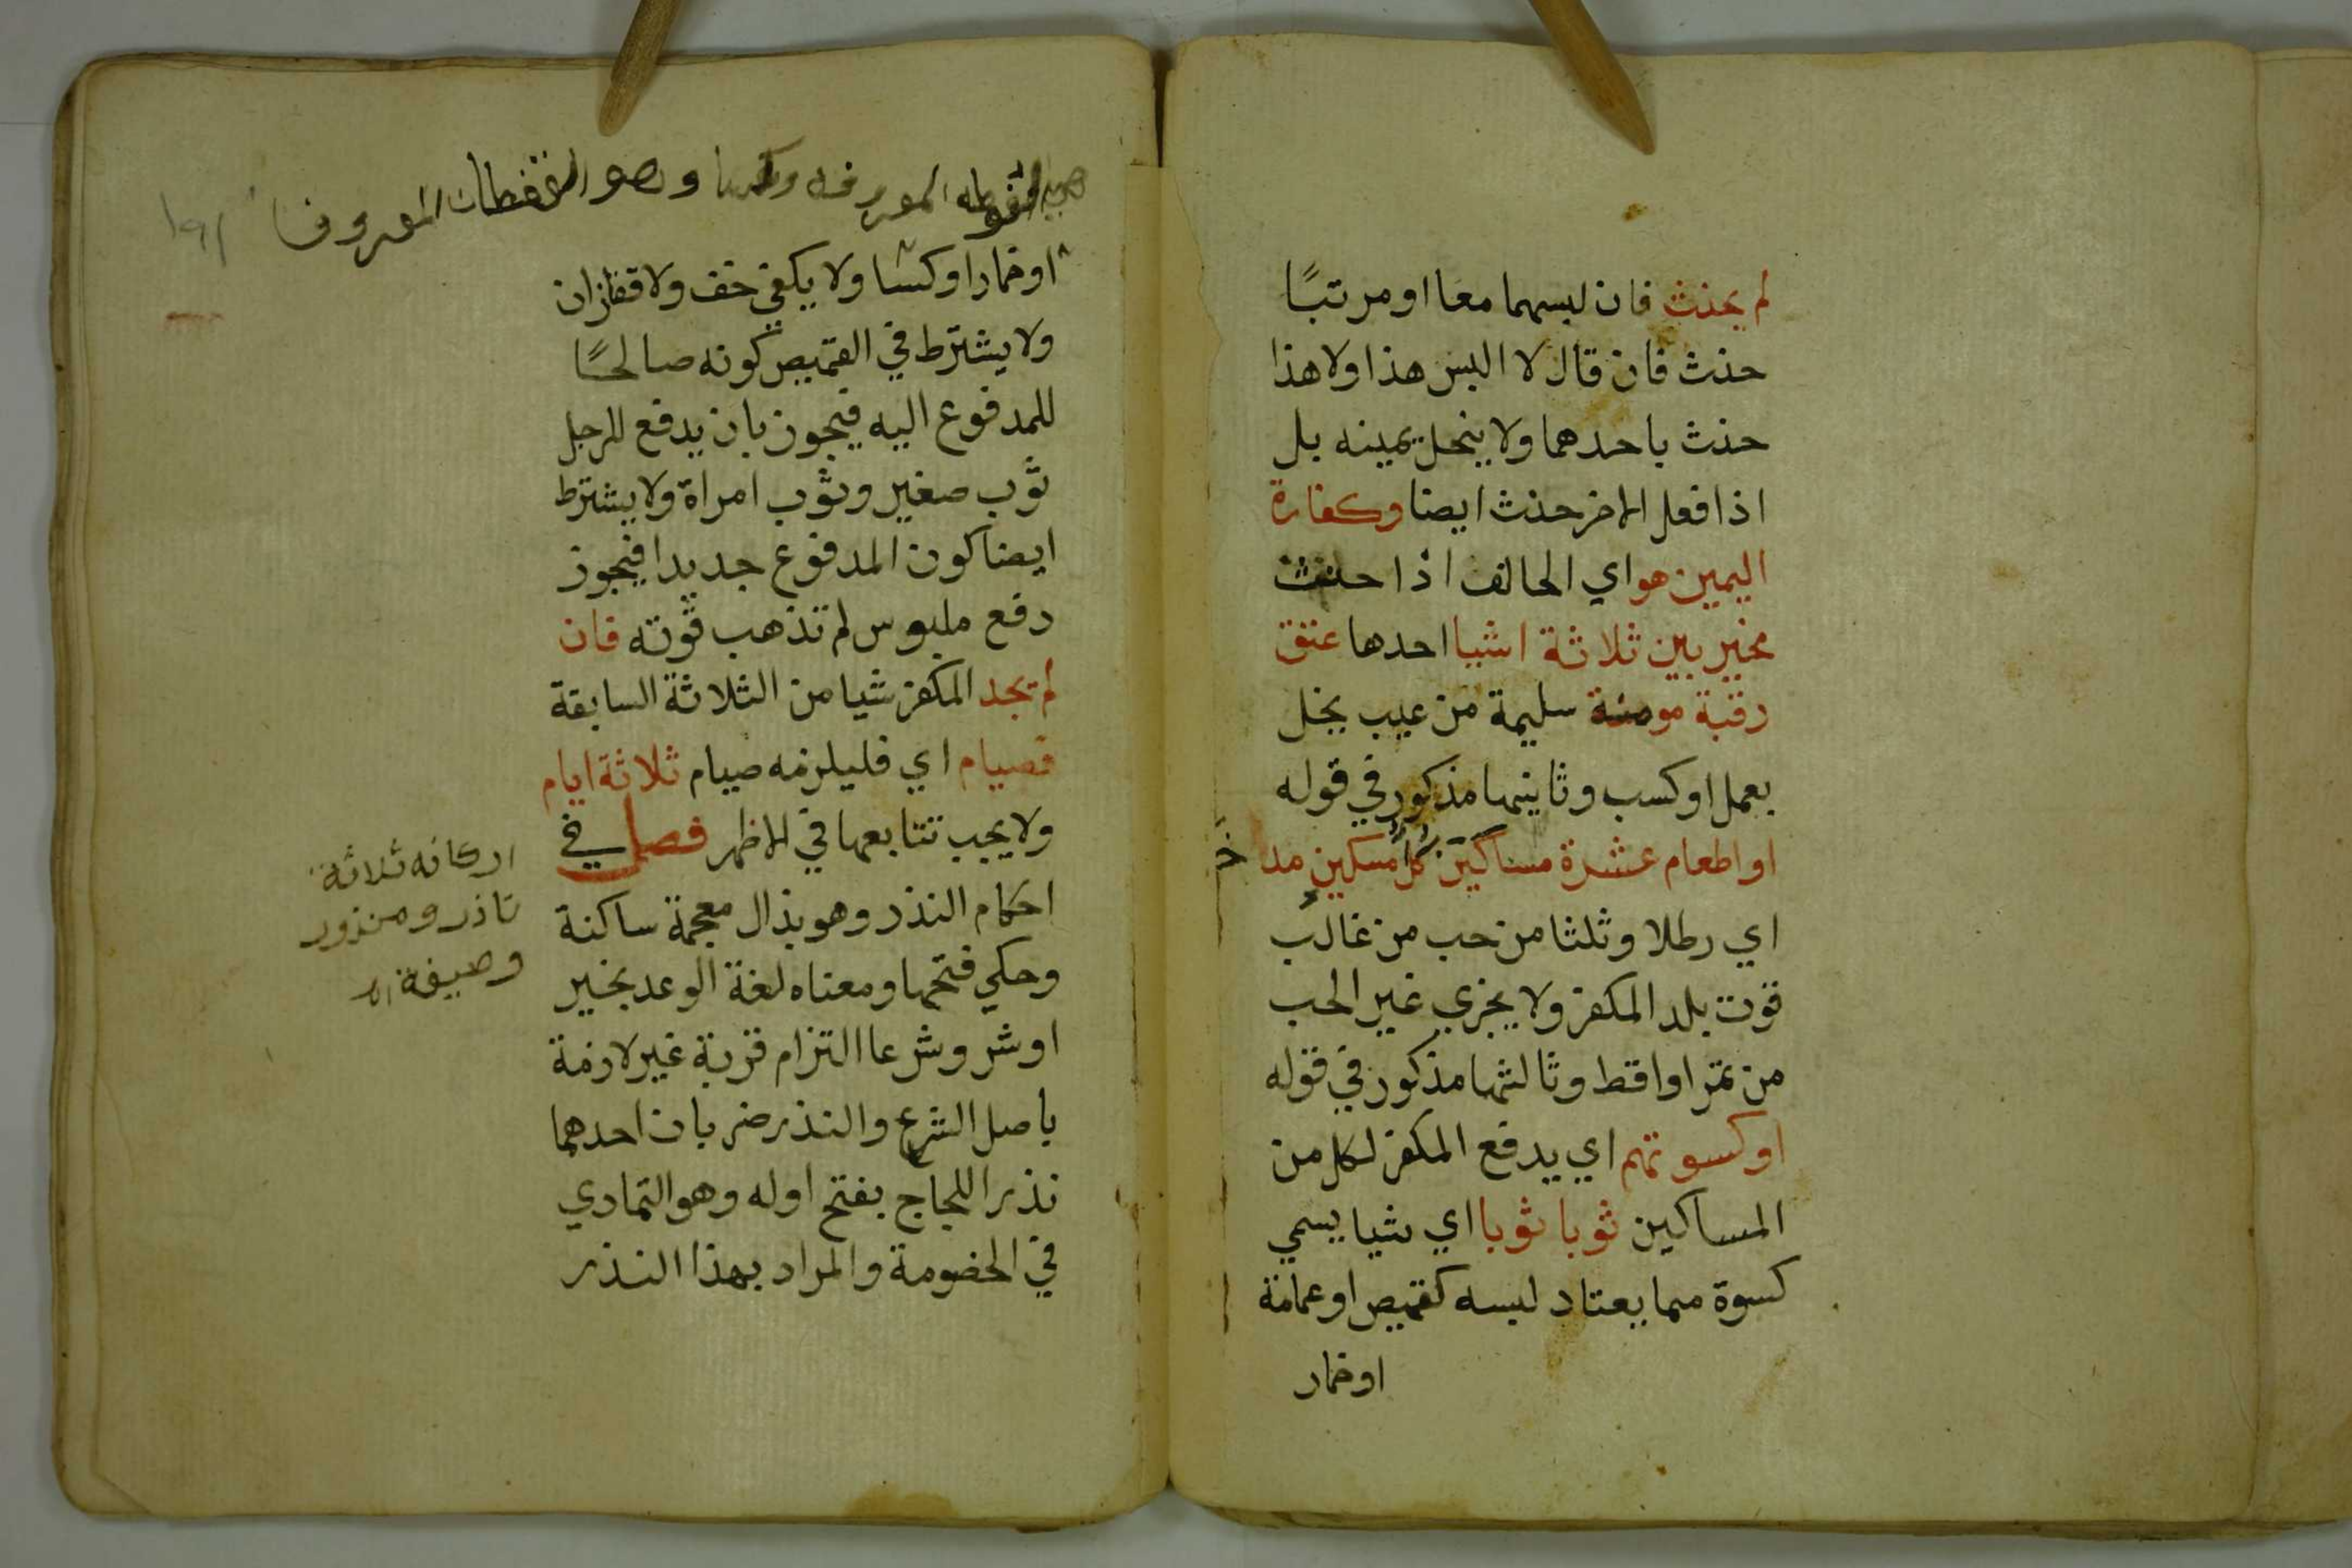 لم يحنث فان لبسهما معا او مرتبًا
حنث فان قال لا البس هذا ولا هذا
حنث باحدهما ولا ينحل يمينه بل
اذا فعل الاخر حنث ايضا وكفارة
اليمين هو اي الحالف اذا حنث
مخير بين ثلاثة اشيا احدها عتق
رقبة مومنة سليمة من عيب يخل
بعمل او كسب وثانيها مذكور في قوله
او اطعام عشرة مساكين كل مسكين مدا
اي رطلا وثلثا من حب من غالب
قوت بلد المكفر ولا يجزي غير الحب
من تمر او اقط وثالثها مذكور في قوله
او كسوتهم اي يدفع المكفر لكل من
المساكين ثوبا ثوبا اي شيا يسمي
كسوة مما يعتاد لبسه كقميص او عمامة
او خمار
المعروفه وهو المعروف
او خمارا او كسا ولا يكفي خف ولا قفازان
ولا يشترط في القميص كونه صالحًا
للمدفوع اليه فيجوز بان يدفع للرجل
ثوب صغير وثوب امراة ولا يشترط
ايضا كون المدفوع جديدا فيجوز
دفع ملبوس لم تذهب قوته فان
لم يجد المكفر شيا من الثلاثة السابقة
فصيام اي فليلزمه صيام ثلاثة ايام
ولا يجب تتابعها في الاظهر فصل في
احكام النذر وهو بذال معجمة ساكنة
وحكي فتحها ومعناه لغة الوعد بخير
او شر وشرعا التزام قربة غير لازمة
باصل الشرع والنذر ضربان احدهما
نذر اللجاج بفتح اوله وهو التمادي
في الخصومة والمراد بهذا النذر
اركانه ثلاثة
ناذر ومنذور
وصيغة اه